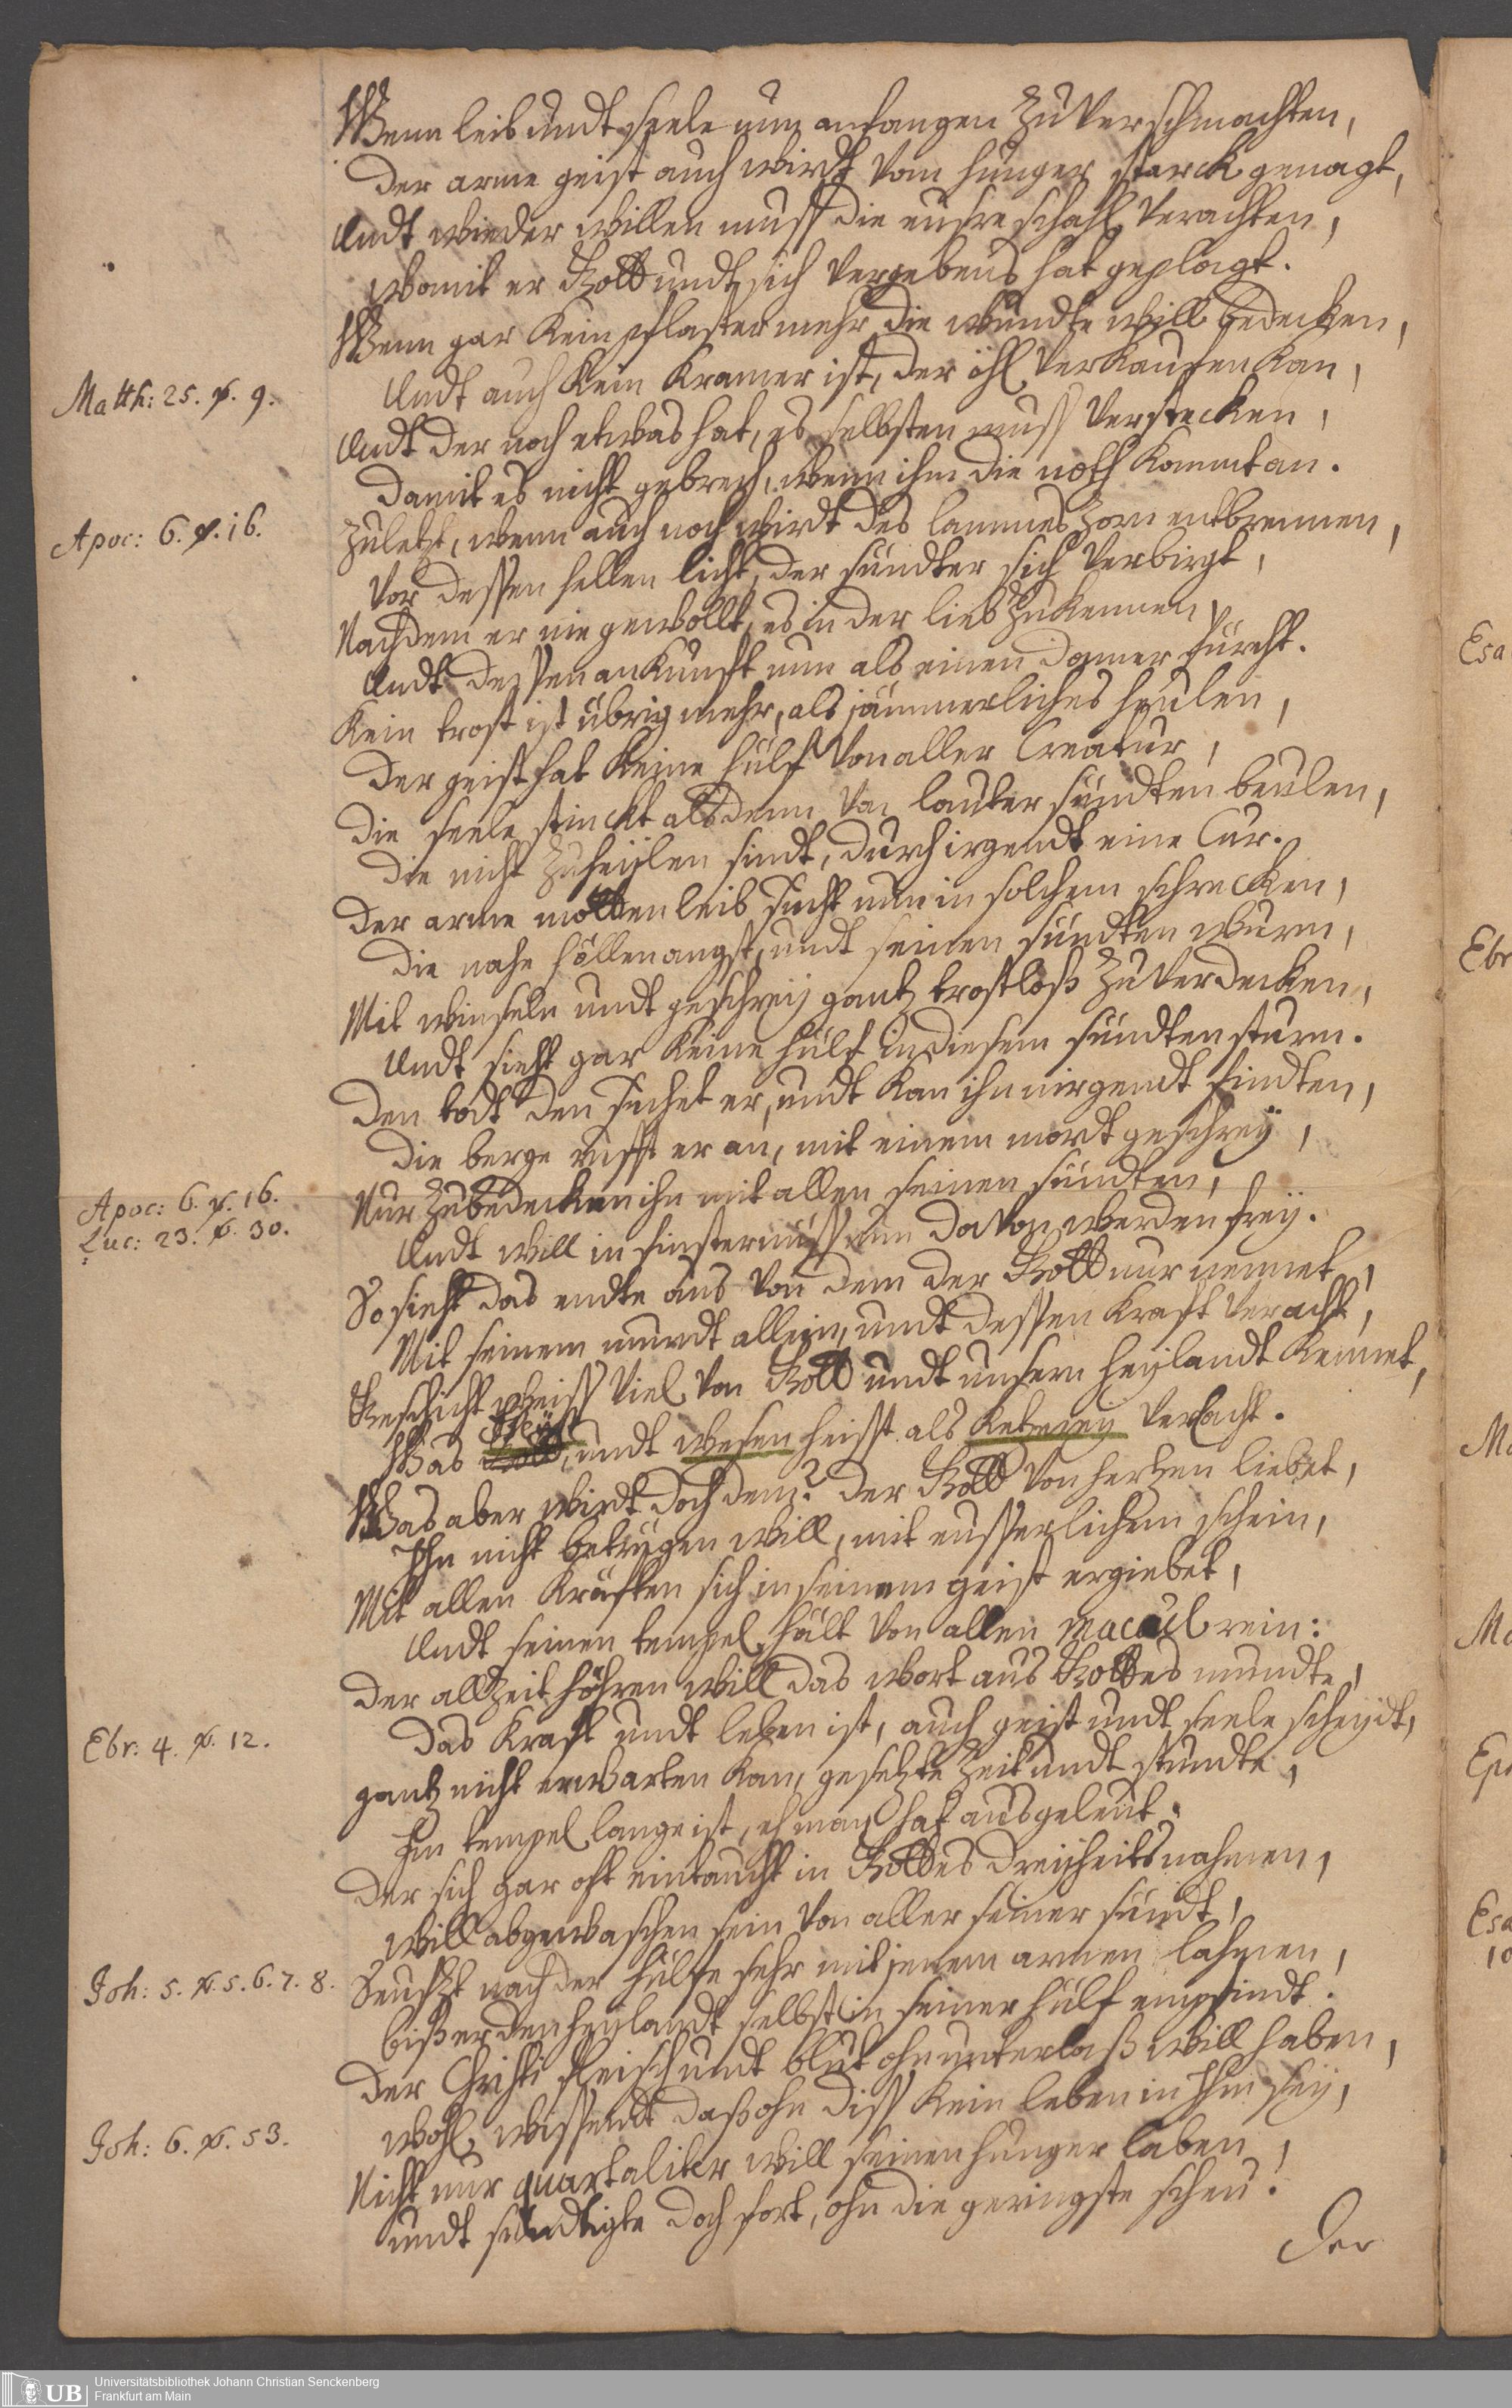 Wenn leib undt seele nun anfangen zu verschmachten,
der arme geist auch wirdt vom hunger starck genagt,
Undt wieder willen muss die eusre schahl verachten,
womit er Gott undt sich vergebens hat geplagt.
Wenn gar kein pflaster mehr die wundte will bedecken,
Matth: 25. ℣. 9.
Undt auch kein kramer ist, der öhl verkaufen kan,
Undt der noch etwas hat, es selbsten muss verstecken,
damit es nicht gebrech, wenn ihm die noth kommt an.
Apoc: 6. ℣. 16.
Zuletzt, wenn auch noch wirdt des lammes zorn entbrennen,
vor dessen hellen licht, der sündter sich verbirgt,
Nachdem er nie gewollt, es in der lieb zu kennen,
Undt dessen ankunft nun als einen donner fürcht.
Kein trost ist übrig mehr, als jämmerliches heulen,
der geist hat keine hülf von aller Creatur,
die seele stinckt alsdenn von lauter sündten beulen,
die nicht zu heijlen sindt, durch irgendt eine Cur.
der arme motten leib sucht nun in solchem schrecken,
die nahe höllenangst, undt seinen sündten wurm,
Mit winseln undt geschreij gantz trostloß zu verdecken,
Undt sieht gar keine hülf in diesem sündten sturm.
den todt den suchet er, undt kan ihn nirgendt findten,
die berge rufft er an, mit einem mordt geschreÿ,
Apoc: 6. ℣. 16.
Luc: 23. ℣. 30.
Nur zu bedecken ihn mit allen seinen sündten,
Undt will in finsternüss nun davon werden freÿ.
So sieht das endte aus von dem der Gott nur nennet,
Mit seinem mundt allein, undt dessen kraft veracht,
Geschicht weiss viel von Gott undt unsern heijlandt kennet,
Was undt wesen heisst als ketzereij verlacht.
Was aber wirdt doch dem? der Gott von hertzen liebet,
Ihn nicht betrügen will, mit eusserlichem schein,
Mit allen kräften sich in seinem geist ergiebet,
Undt seinen tempel hält von allen macul rein:
der allzeit höhren will das wort aus Gottes mundte,
Ebr: 4. ℣. 12.
das kraft undt leben ist, auch geist undt seele scheijdt,
gantz nicht erwarten kan, gesetzte zeit undt stundte,
Im tempel lange ist, eh man hat ausgeleut.
der sich gar oft eintaucht in Gottes dreijheits nahmen,
will abgewaschen sein von aller seiner sündt,
Joh: 5. ℣. 5. 6. 7. 8.
Seufzt nach der hülfe sehr mit jenem armen lahmen,
biß er den heijlandt selbst in seiner hülf empfindt.
der Christi fleisch undt blut ohn unterlaß will haben,
Joh: 6. ℣. 53.
wohl wissendt daß ohn diss kein leben in Ihm seij,
Nicht nur quartaliter will seinen hunger laben,
undt sündigte doch fort, ohn die geringste scheu.
der
Esa
Ebr
Ma
Ma
Eph
Esa
10
UB Universitätsbibliothek Johann Christian Senckenberg
Frankfurt am Main